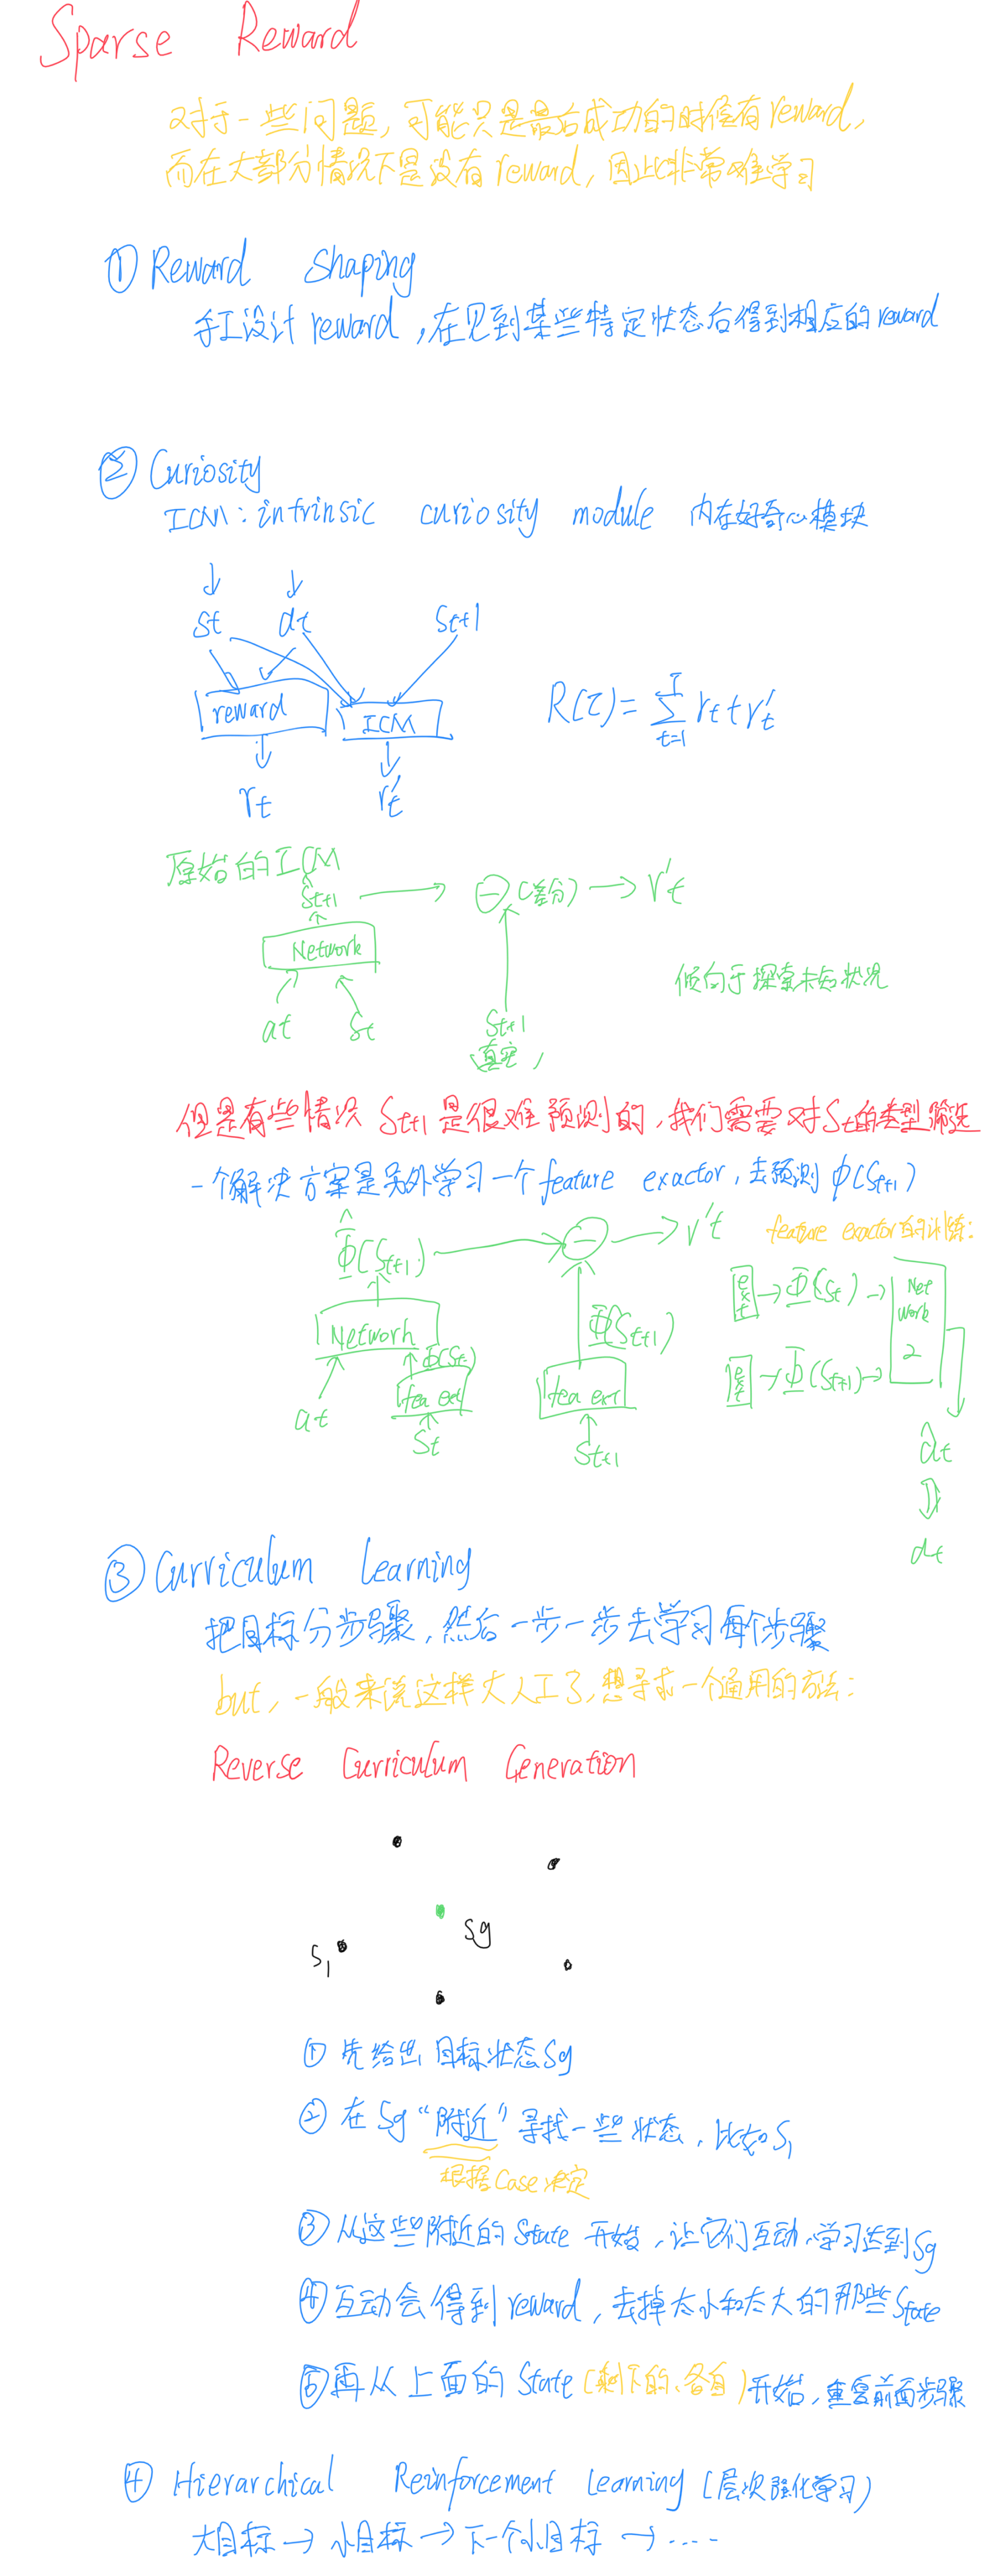 Sparse Reward
对于一些问题，可能只是最后成功的时候有reward，
而在大部分情况下是没有reward，因此非常难学习
① Reward Shaping
手工设计reward，在见到某些特定状态后得到相应的reward
② Curiosity
ICM：intrinsic curiosity module 内在好奇心模块
st at St+1
reward ICM
R(τ)=∑t=1T rt+r't
rt r't
原始的ICM
Ŝt+1 ⊖(差分) → r't
Network
倾向于探索未知状况
at St St+1
（真实）
但是有些情况 St+1 是很难预测的，我们需要对St的类型筛选
一个解决方案是另外学习一个feature exactor，去预测 φ(St+1)
Φ̂(St+1) ⊖ → r't
feature exactor的训练：
ext → Φ(St) → Network 2
Network
Φ(St+1)
Φ(St)
ext → Φ(St+1) →
fea ext
fea ext
at
St
St+1
ât
at
③ Curriculum Learning
把目标分步骤，然后一步一步去学习每个步骤
but，一般来说这样太人工了，想寻求一个通用的方法：
Reverse Curriculum Generation
Sg
S1
① 先给出目标状态Sg
② 在Sg“附近”寻找一些状态，比如S1
根据Case决定
③ 从这些附近的State开始，让它们互动，学习达到Sg
④ 互动会得到reward，去掉太小和太大的那些State
⑤ 再从上面的State（剩下的、各自）开始，重复前面步骤
④ Hierarchical Reinforcement Learning（层次强化学习）
大目标 → 小目标 → 下一个小目标 → ....